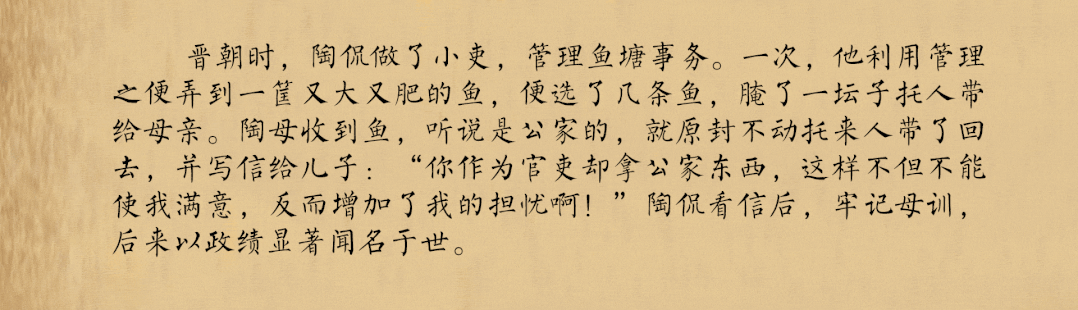 晋朝时，陶侃做了小吏，管理鱼塘事务。一次，他利用管理
之便弄到一筐又大又肥的鱼，便选了几条鱼，腌了一坛子托人带
给母亲。陶母收到鱼，听说是公家的，就原封不动托来人带了回
去，并写信给儿子：“你作为官吏却拿公家东西，这样不但不能
使我满意，反而增加了我的担忧啊！”陶侃看信后，牢记母训，
后来以政绩显著闻名于世。